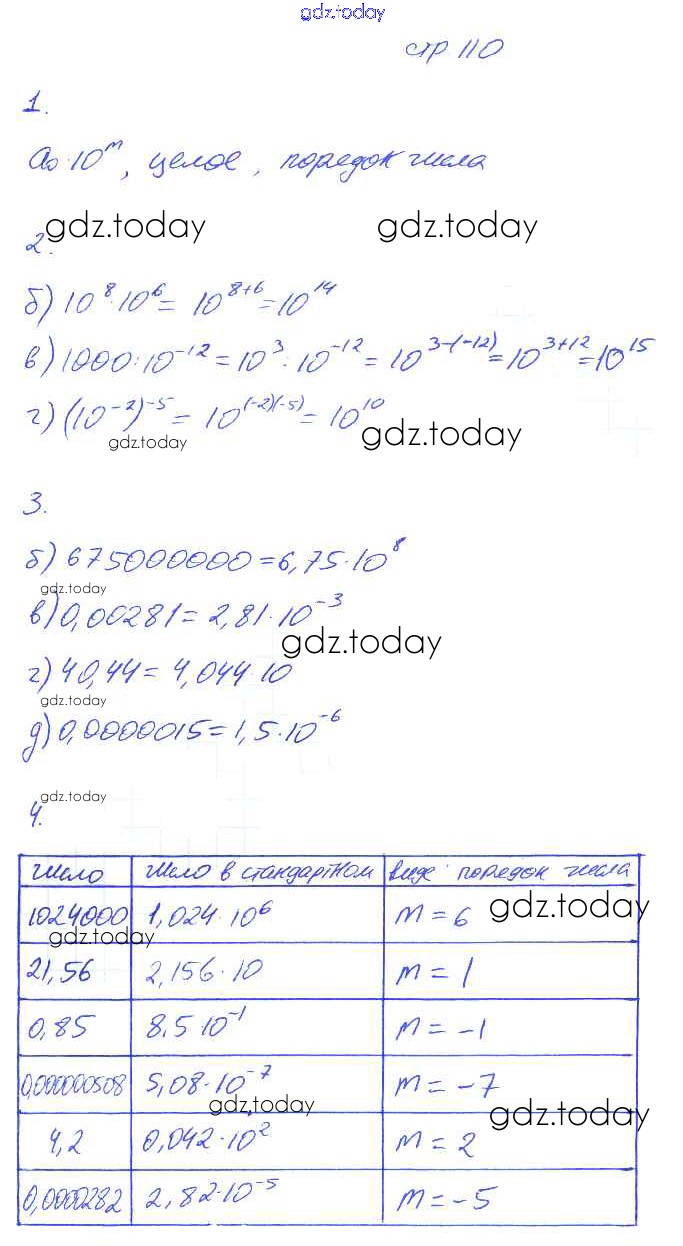 gdz.today
стр 110
1.
a₀·10ᵐ, целое, поредок числа
gdz.today gdz.today
2.
б) 10⁸·10⁶ = 10⁸⁺⁶ = 10¹⁴
в) 1000:10⁻¹² = 10³:10⁻¹² = 10³⁻⁽⁻¹²⁾ = 10³⁺¹² = 10¹⁵
г) (10⁻²)⁻⁵ = 10⁽⁻²⁾⁽⁻⁵⁾ = 10¹⁰
gdz.today gdz.today
3.
б) 675000000 = 6,75·10⁸
gdz.today
в) 0,00281 = 2,81·10⁻³
gdz.today
г) 40,44 = 4,044·10
gdz.today
д) 0,0000015 = 1,5·10⁻⁶
gdz.today
4.
число число в стандартном виде поредок числа
1024000 1,024·10⁶ m = 6 gdz.today
gdz.today
21,56 2,156·10 m = 1
0,85 8,5·10⁻¹ m = -1
0,000000508 5,08·10⁻⁷ m = -7
gdz.today gdz.today
4,2 0,042·10² m = 2
0,0000282 2,82·10⁻⁵ m = -5